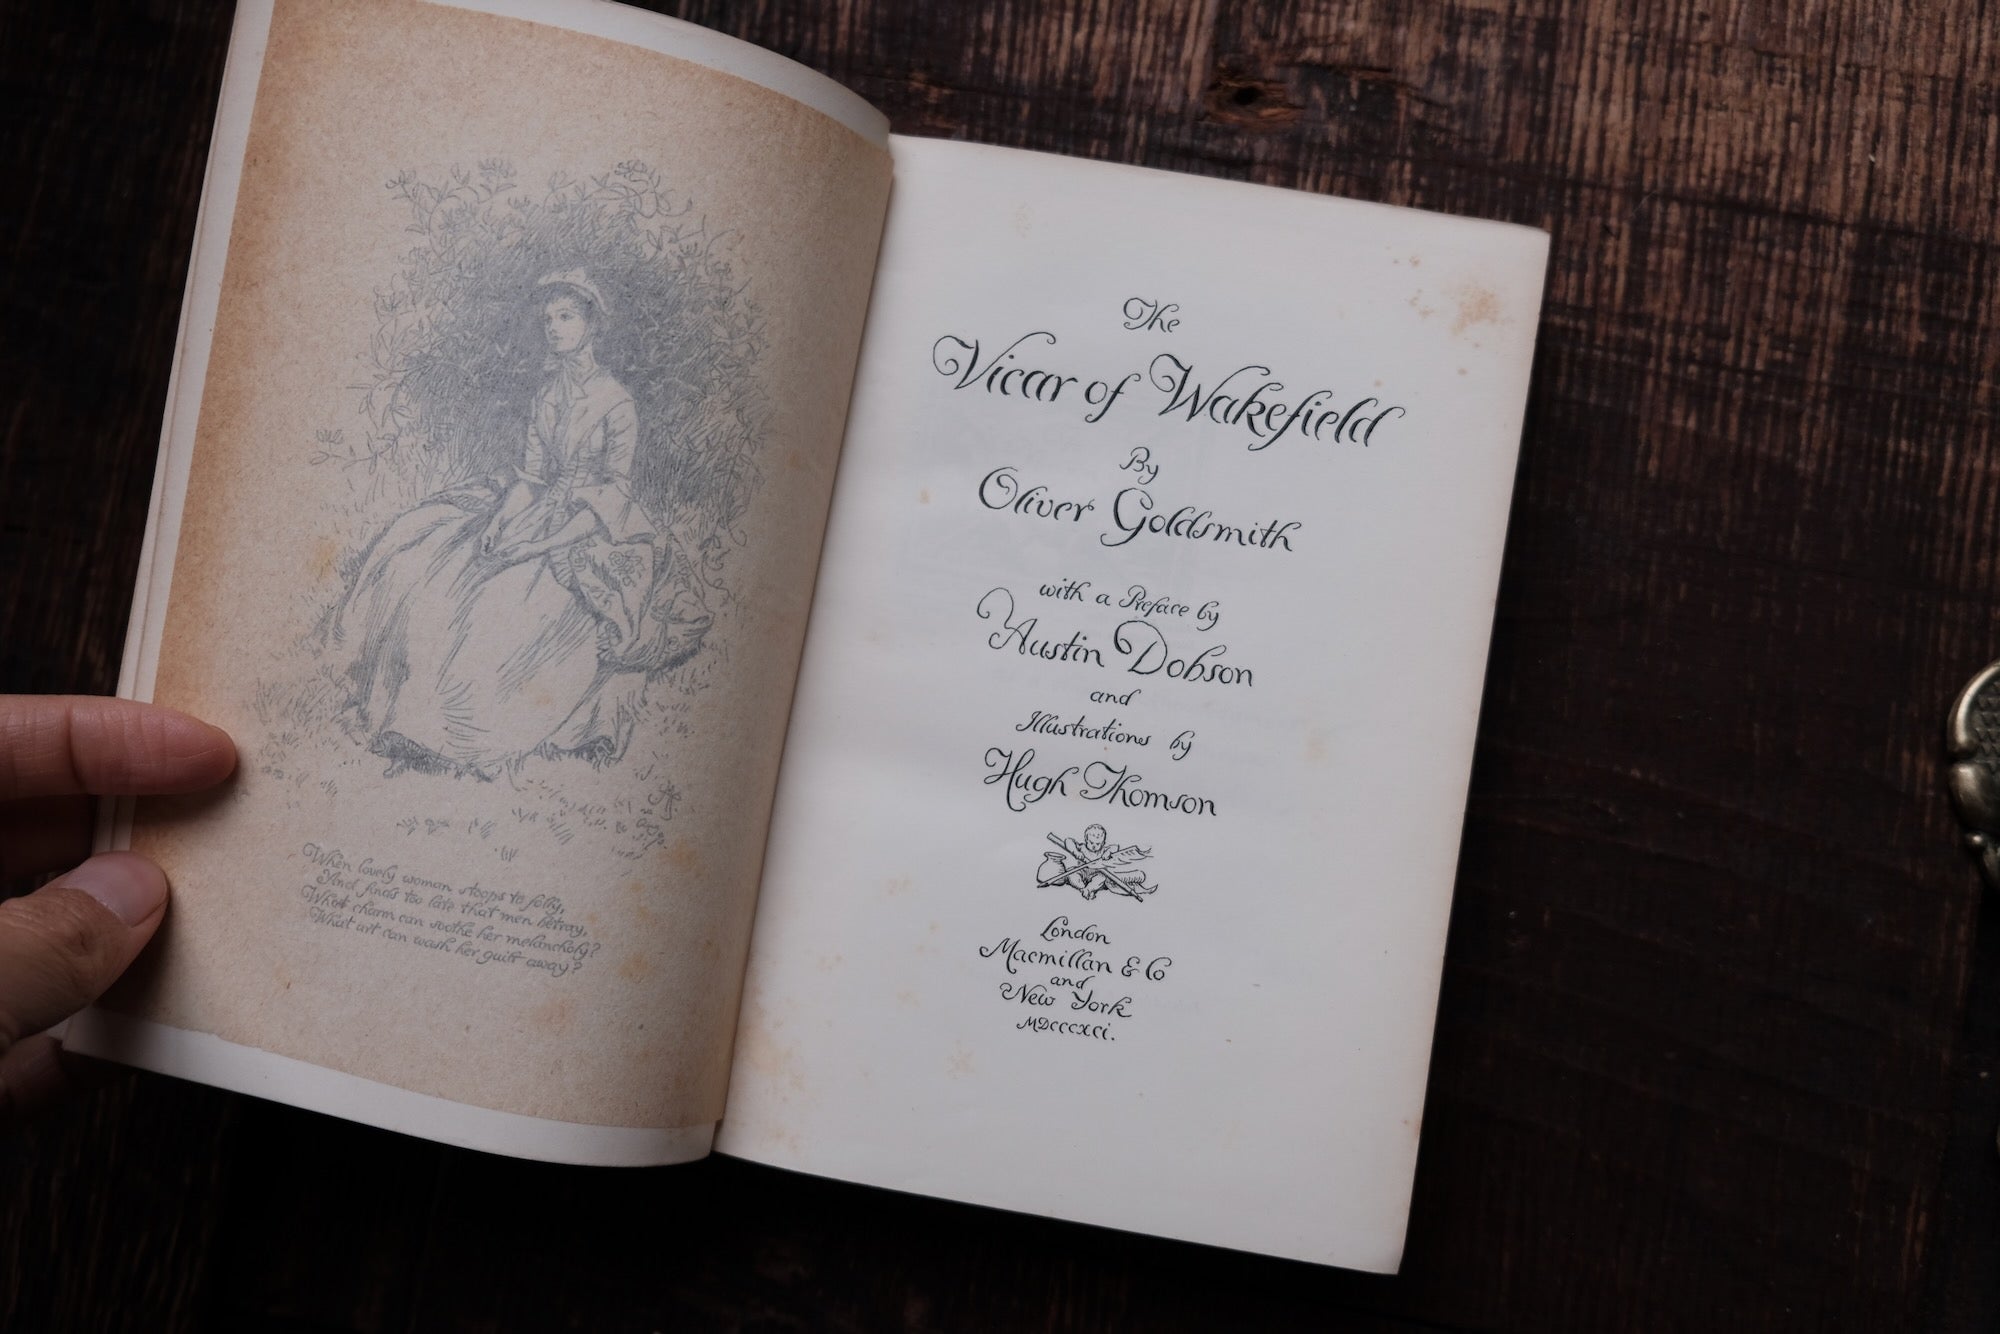 When lovely woman stoops to folly,
And finds too late that men betray,
What charm can soothe her melancholy?
What art can wash her guilt away?
The
Vicar of Wakefield
By
Oliver Goldsmith
with a Preface by
Austin Dobson
and
Illustrations by
Hugh Thomson
London
Macmillan & Co
and
New York
MDCCCXCI.